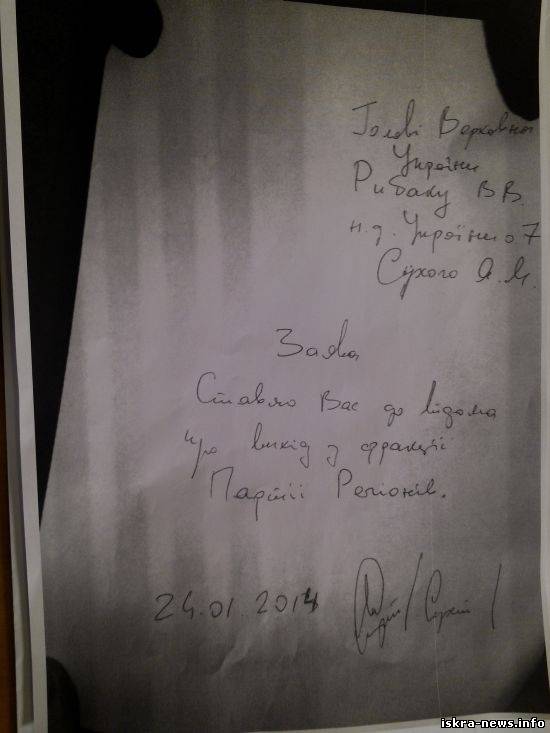 Голові Верховної
України
Рибаку В В.
н.д. України 7
Сухого Я.М.
Заява
Ставлю Вас до відома
про вихід з фракції
Партії Регіонів.
24.01.2014 / Сухий /
iskra-news.info